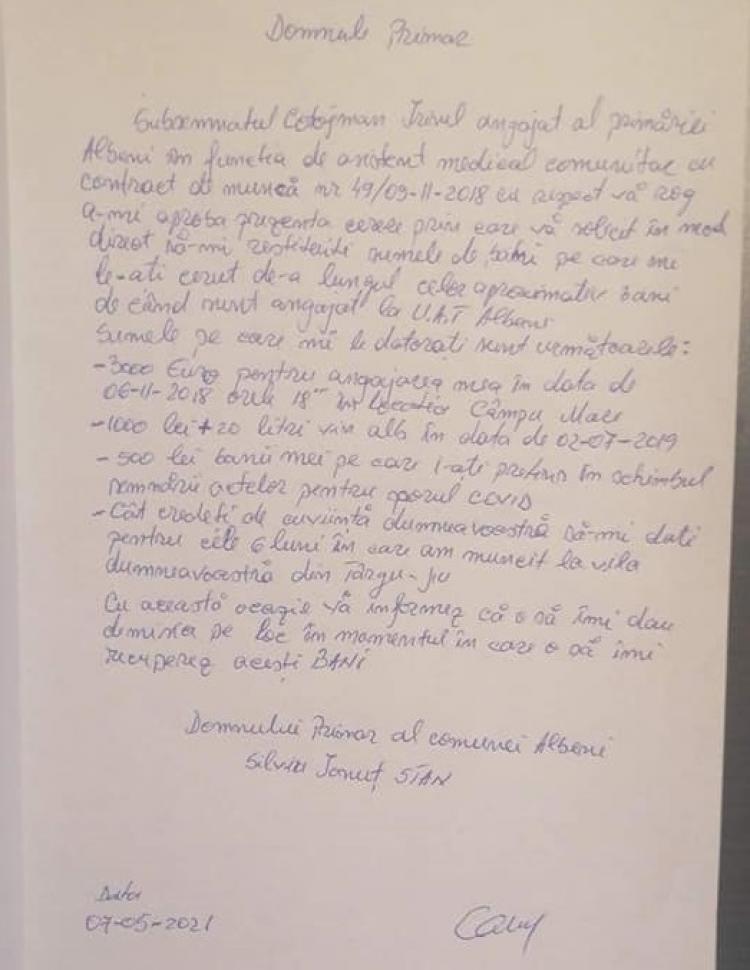 Domnule Primar
Subsemnatul Cotojman Irinel angajat al primăriei
Alboni în funcția de asistent medical comunitar cu
contract de muncă nr 49/09-11-2018 cu respect vă rog
a-mi aproba prezenta cerere prin care vă solicit în mod
direct să-mi restituiți sumele de bani pe care mi
le-ați cerut de-a lungul celor aproximativ 3ani
de când sunt angajat la U.A.T Alboni
Sumele pe care mi le datorați sunt următoarele:
-3000 Euro pentru angajarea mea în data de
06-11-2018 orele 18⁰⁰ în locația Câmpu Mare
-1000 lei + 20 litri vin alb în data de 02-07-2019
- 500 lei banii mei pe care i-ați pretins în schimbul
semnării actelor pentru sporul COVID
- Cât credeți de cuviință dumneavoastră să-mi dați
pentru cele 6 luni în care am muncit la vila
dumneavoastră din Târgu-Jiu
Cu această ocazie vă informez că o să îmi dau
demisia pe loc în momentul în care o să îmi
recuperez acești BANI
Domnului Primar al comunei Alboni
Silviu Ionuț STAN
Data
07-05-2021